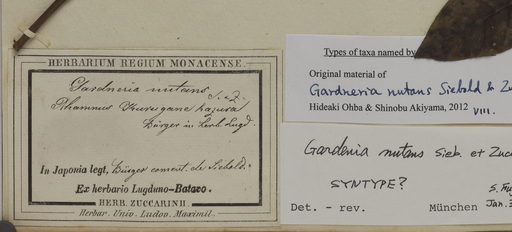 HERBARIUM REGIUM MONACENSE.
Gardneria nutans
S. & Z.
Rhamnus Kuregane kazura
Bürger in herb. Lugd.
In Japonia legt. Bürger coment. de Siebold.
Ex herbario Lugduno-Batavo.
HERB. ZUCCARINII.
Herbar. Univ. Ludov. Maximil.
Types of taxa named by
Original material of
Gardneria nutans Siebold & Zu
Hideaki Ohba & Shinobu Akiyama, 2012 VIII.
Gardenia nutans Sieb. et Zuc
SYNTYPE?
Det. - rev. München Jan. 3